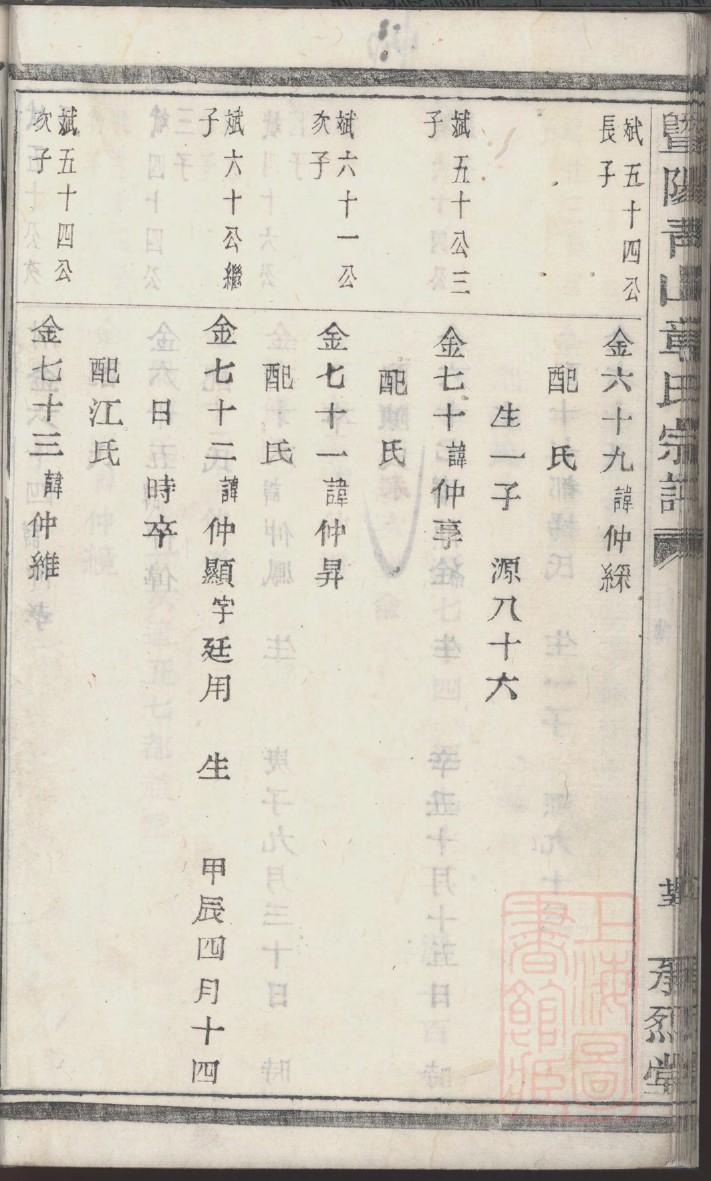 暨陽青山章氏宗譜
承烈堂
斌五十四公
長子
金六十九諱仲綵
配氏
生一子 源八十六
斌五十公三
子
金七十諱仲享
配氏
斌六十一公
次子
金七十一諱仲昇
配氏
斌六十公繼
子
金七十二諱仲顯字廷用 生 甲辰四月十四
日時卒
配江氏
斌五十四公
次子
金七十三諱仲維
上海圖
書館藏